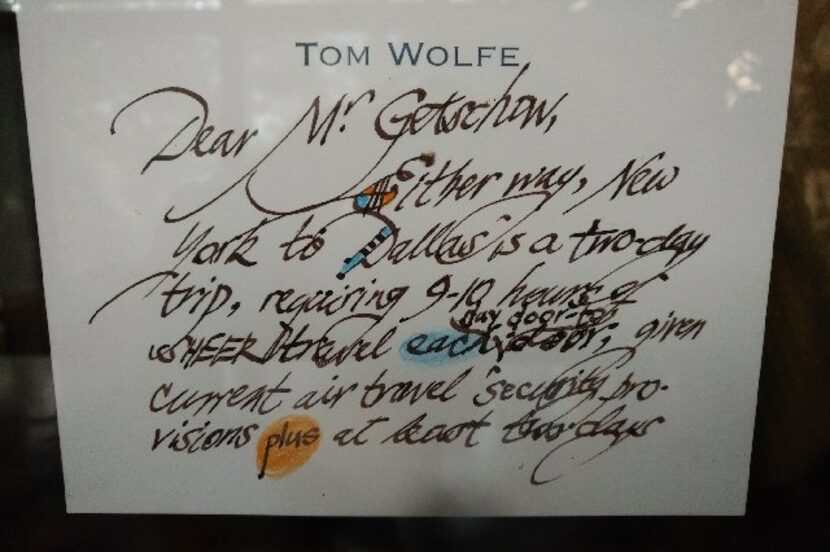 TOM WOLFE
Dear Mr Getschow,
Either way, New
York to Dallas is a two-day
trip, requiring 9-10 hours of
day door-to-
SHEER travel each door, given
current air travel "security" pro-
visions plus at least two days